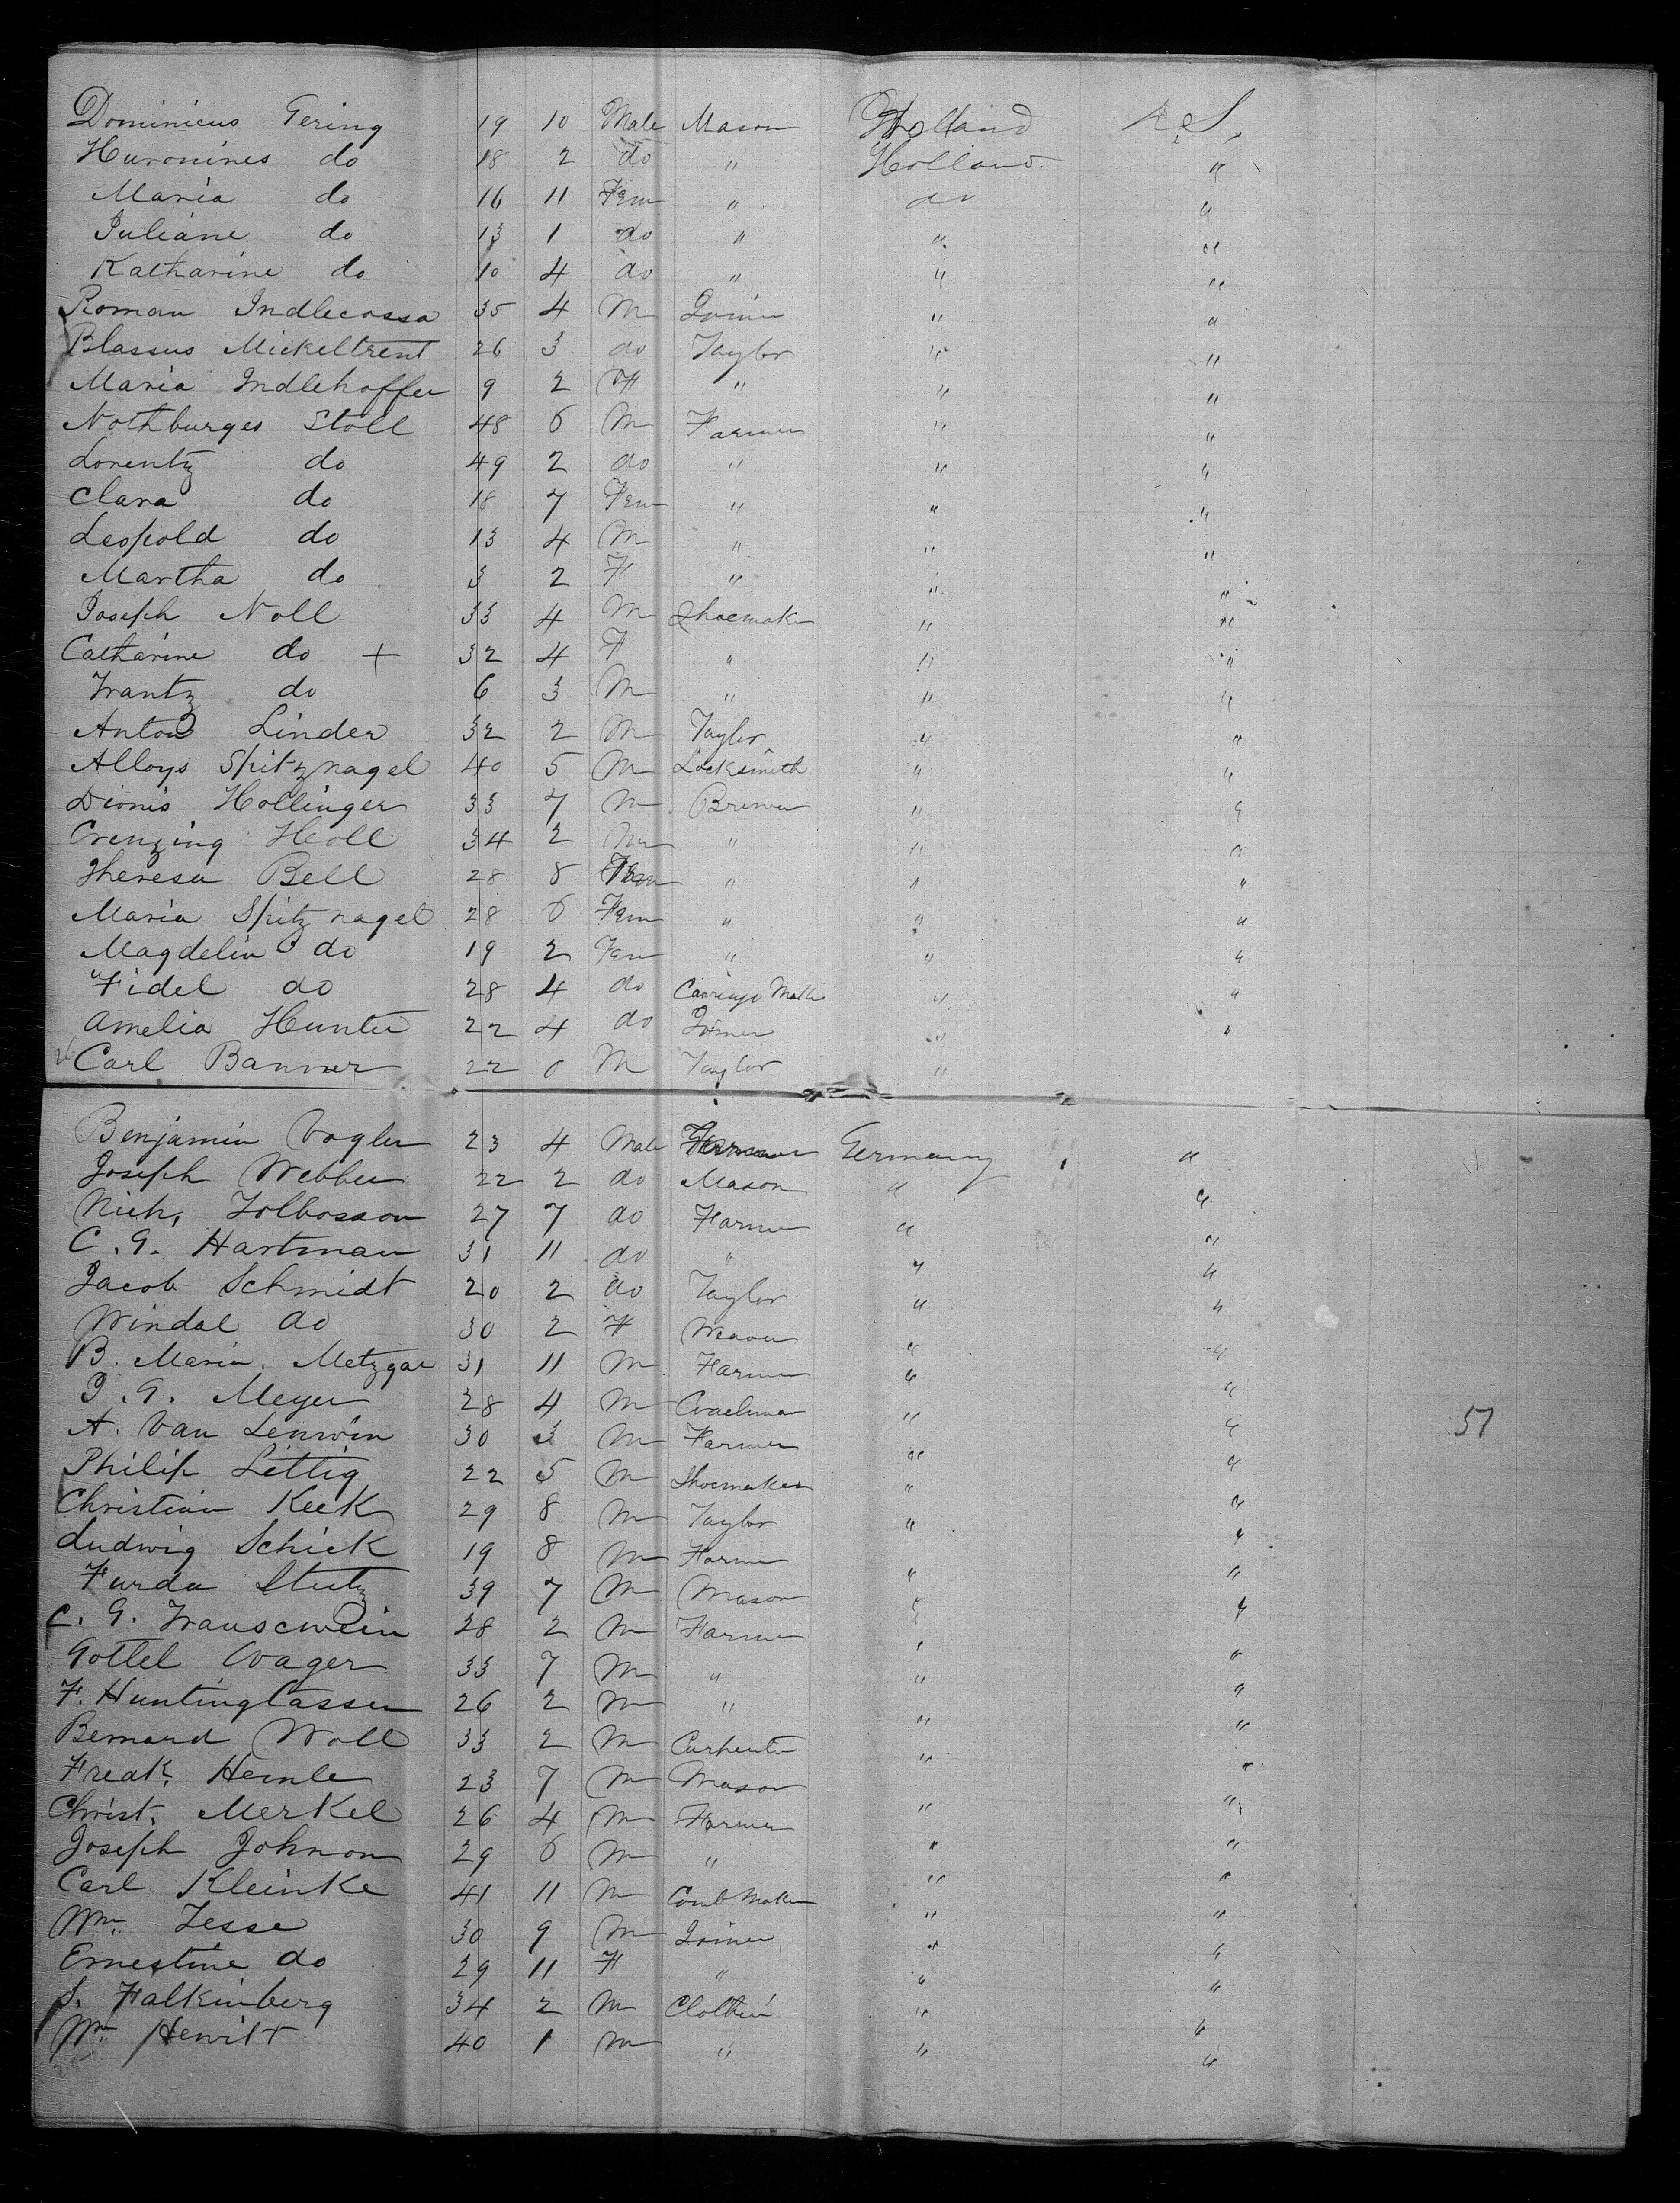 Dominicus Gering 19 10 Male Mason Holland U.S.
Huronines do 18 2 do " Holland "
Maria do 16 11 Fem " do "
Juliane do 13 1 do " " "
Katharine do 10 4 do " " "
Roman Indlecossa 35 4 M Joiner " "
Blassus Mickeltrent 26 3 do Taylor " "
Maria Indlehoffer 9 2 F " " "
Nothburges Stoll 48 6 M Farmer " "
Lorentz do 49 2 do " " "
Clara do 18 7 Fem " " "
Leopold do 13 4 M " " "
Martha do 3 2 F " " "
Joseph Noll 33 4 M Shoemaker " "
Catharine do + 32 4 F " " "
Frantz do 6 3 M " " "
Anton Linder 32 2 M Taylor " "
Alloys Spitznagel 40 5 M Locksmith " "
Dionis Hollinger 33 7 M Brewer " "
Crenzing Holl 34 2 M " " "
Theresa Bell 28 8 Fem " " "
Maria Spitznagel 28 6 Fem " " "
Magdelin do 19 2 Fem " " "
Fidel do 28 4 do Carriage Mak " "
Amelia Hunter 22 4 do Joiner " "
26 Carl Banner 22 0 M Taylor "
Benjamin Vogler 23 4 Male Farmer Germany "
Joseph Webber 22 2 do Mason " "
Nich, Tolbosson 27 7 do Farmer " "
C. G. Hartman 31 11 do " " "
Jacob Schmidt 20 2 do Taylor " "
Windal do 30 2 F Weaver " "
B. Maria. Metzgar 31 11 M Farmer " "
J. G. Meyer 28 4 M Coachman " "
A. Van Lenwin 30 3 M Farmer " " 51
Philip Lettig 22 5 M Shoemaker " "
Christian Keck 29 8 M Taylor " "
Ludwig Schick 19 8 M Farmer " "
Furda Stutz 39 7 M Mason " "
C. G. Frauscwein 28 2 M Farmer " "
Gottel Wager 33 7 M " " "
F. Huntinglassen 26 2 M " " "
Bernard Woll 33 2 M Carpenter " "
Freak, Hemle 23 7 M Mason " "
Christ, Merkel 26 4 M Farmer " "
Joseph Johnson 29 6 M " " "
Carl Kleinke 41 11 M Comb Maker " "
Wm. Jesse 30 9 M Joiner " "
Ernestine do 29 11 F " " "
S. Falkinberg 34 2 M Clothier " "
Wm Hewitt 40 1 M " " "